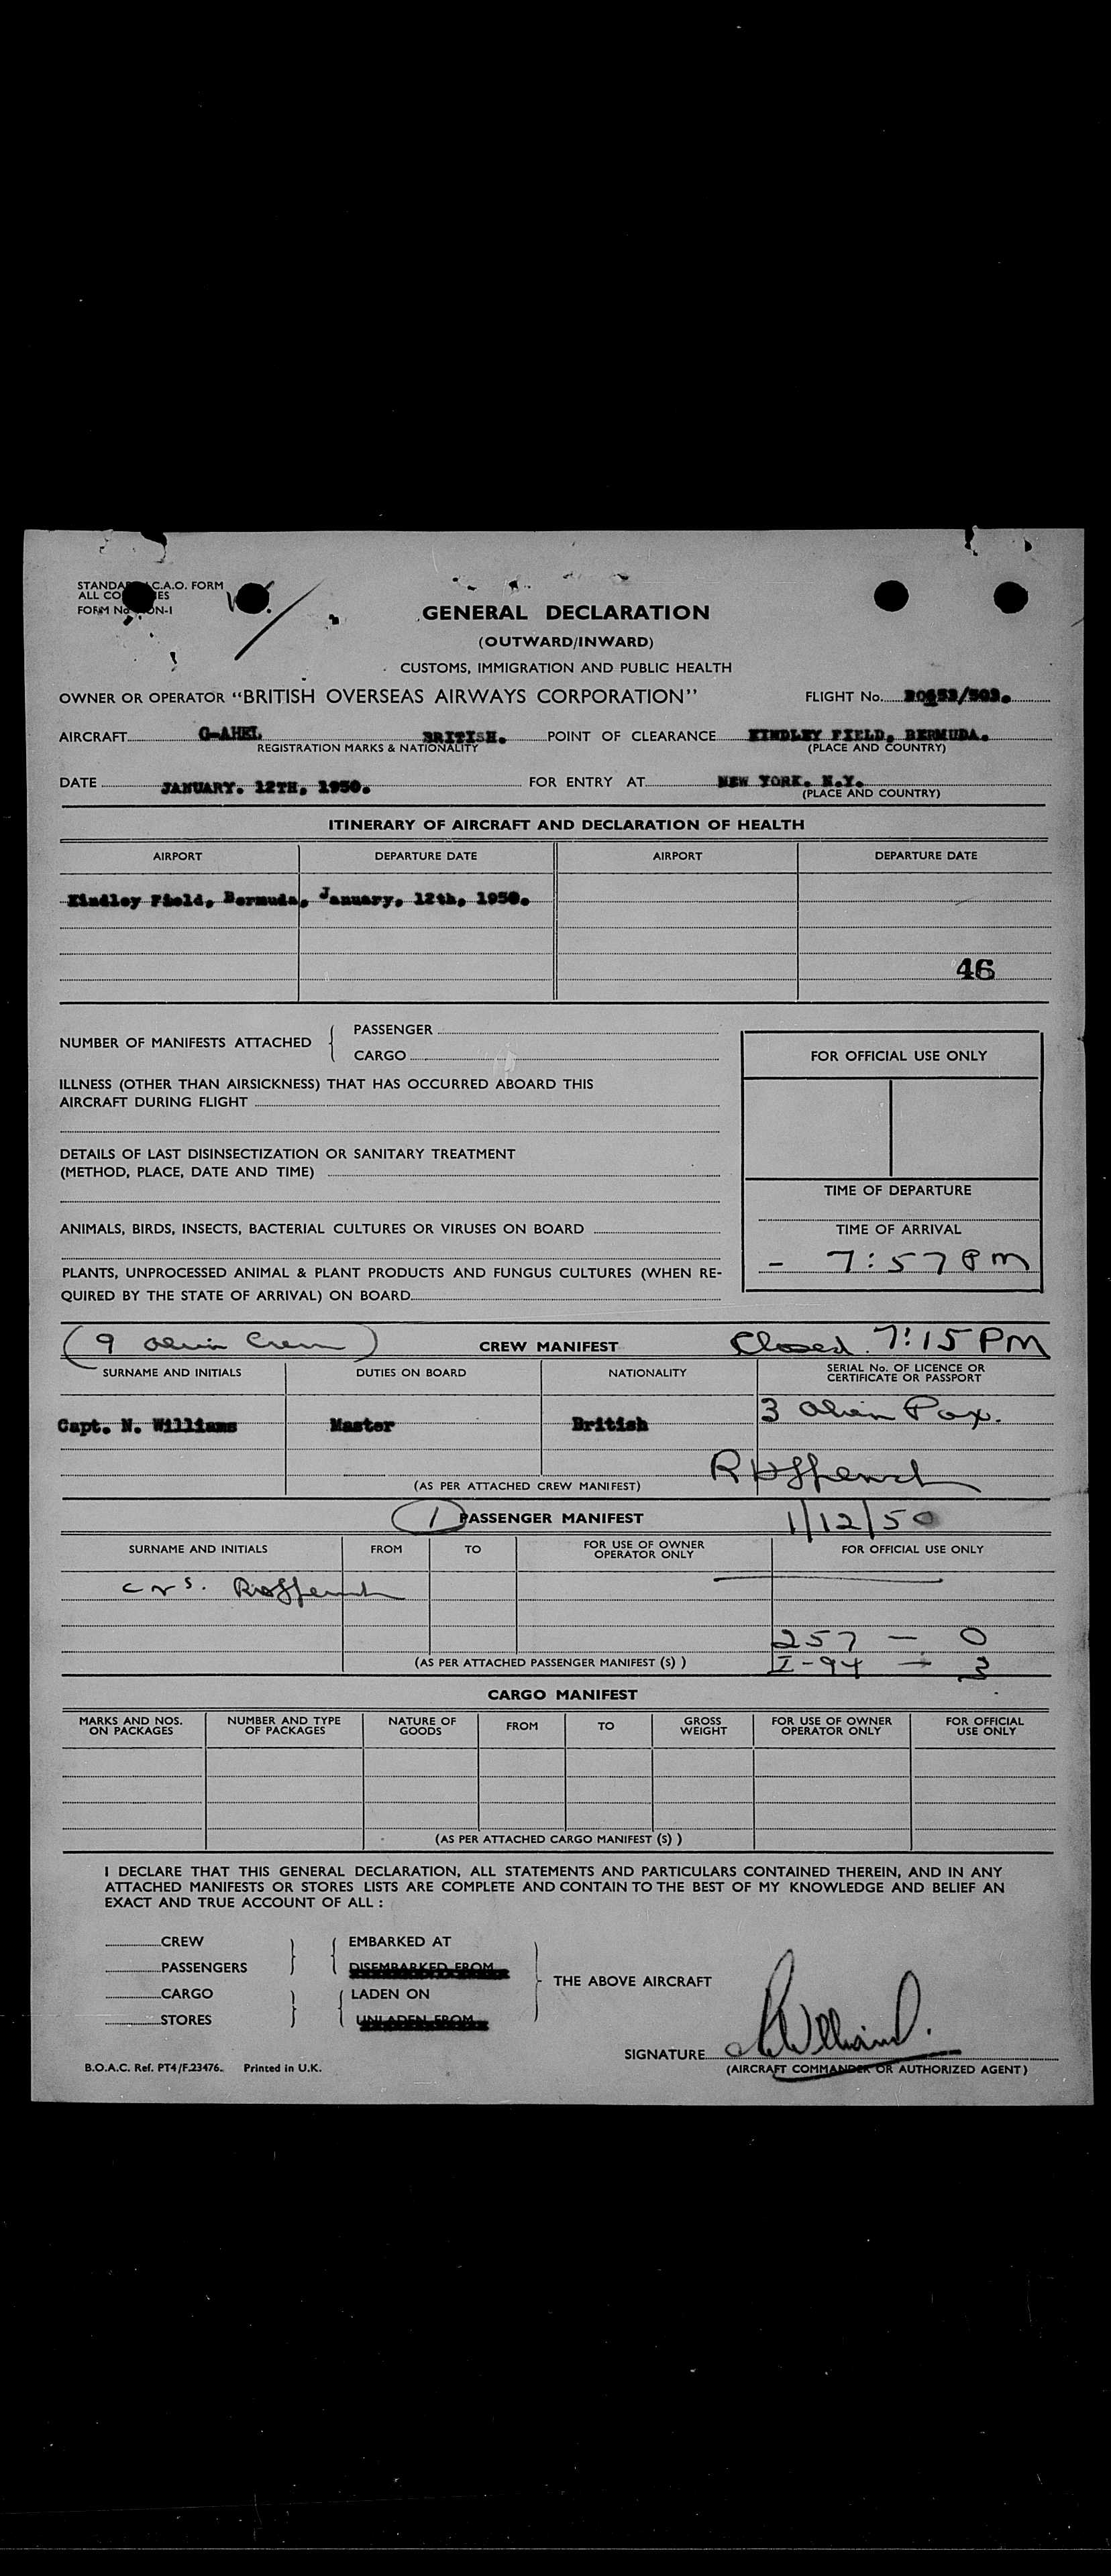 STANDARD I.C.A.O. FORM
ALL COUNTRIES
FORM No. CON-1
GENERAL DECLARATION
(OUTWARD/INWARD)
CUSTOMS, IMMIGRATION AND PUBLIC HEALTH
OWNER OR OPERATOR “BRITISH OVERSEAS AIRWAYS CORPORATION” FLIGHT No.
AIRCRAFT G-AHEL BRITISH. POINT OF CLEARANCE KINDLEY FIELD, BERMUDA.
REGISTRATION MARKS & NATIONALITY (PLACE AND COUNTRY)
DATE JANUARY. 12TH, 1950. FOR ENTRY AT NEW YORK. N.Y.
(PLACE AND COUNTRY)
ITINERARY OF AIRCRAFT AND DECLARATION OF HEALTH
AIRPORT DEPARTURE DATE AIRPORT DEPARTURE DATE
Kindley Field, Bermuda, January, 12th, 1950.
46
NUMBER OF MANIFESTS ATTACHED { PASSENGER
CARGO
FOR OFFICIAL USE ONLY
ILLNESS (OTHER THAN AIRSICKNESS) THAT HAS OCCURRED ABOARD THIS
AIRCRAFT DURING FLIGHT
DETAILS OF LAST DISINSECTIZATION OR SANITARY TREATMENT
(METHOD, PLACE, DATE AND TIME)
TIME OF DEPARTURE
ANIMALS, BIRDS, INSECTS, BACTERIAL CULTURES OR VIRUSES ON BOARD
TIME OF ARRIVAL
- 7:57 PM
PLANTS, UNPROCESSED ANIMAL & PLANT PRODUCTS AND FUNGUS CULTURES (WHEN RE-
QUIRED BY THE STATE OF ARRIVAL) ON BOARD
(9 alien Crew) CREW MANIFEST Closed 7:15 PM
SURNAME AND INITIALS DUTIES ON BOARD NATIONALITY SERIAL No. OF LICENCE OR
CERTIFICATE OR PASSPORT
3 alien Pax.
Capt. N. Williams Master British
(AS PER ATTACHED CREW MANIFEST)
1 PASSENGER MANIFEST 1/12/50
SURNAME AND INITIALS FROM TO FOR USE OF OWNER
OPERATOR ONLY FOR OFFICIAL USE ONLY
257 — 0
(AS PER ATTACHED PASSENGER MANIFEST (S) ) I-94 — 3
CARGO MANIFEST
MARKS AND NOS.
ON PACKAGES NUMBER AND TYPE
OF PACKAGES NATURE OF
GOODS FROM TO GROSS
WEIGHT FOR USE OF OWNER
OPERATOR ONLY FOR OFFICIAL
USE ONLY
(AS PER ATTACHED CARGO MANIFEST (S) )
I DECLARE THAT THIS GENERAL DECLARATION, ALL STATEMENTS AND PARTICULARS CONTAINED THEREIN, AND IN ANY
ATTACHED MANIFESTS OR STORES LISTS ARE COMPLETE AND CONTAIN TO THE BEST OF MY KNOWLEDGE AND BELIEF AN
EXACT AND TRUE ACCOUNT OF ALL :
CREW EMBARKED AT
PASSENGERS DISEMBARKED FROM
THE ABOVE AIRCRAFT
CARGO LADEN ON
STORES UNLADEN FROM
SIGNATURE N Williams.
(AIRCRAFT COMMANDER OR AUTHORIZED AGENT)
B.O.A.C. Ref. PT4/F.23476. Printed in U.K.